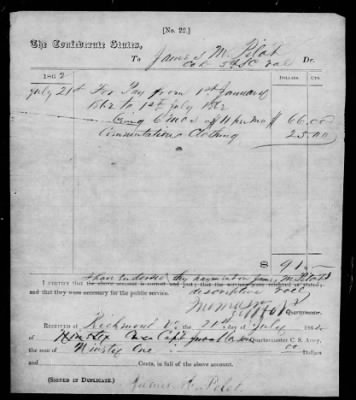 [No. 22.]
The Confederate States,
To James M. Pilot Dr.
Dollars. Cts.
1862
July 21st For Pay from 1st January
1862 to 1st July 1862
being 6 mos at 11 per mo $ 66.00
Commutation Clothing 25.00
$ 91
I have endorsed this payment on James M. Pilot's
I certify that the above account is correct and just; that the
and that they were necessary for the public service. descriptive roll
Quartermaster.
Received at Richmond Va the 21st day of July 1862
of Capt Quartermaster C. S. Army,
the sum of Ninety One Dollars
and Cents, in full of the above account.
[Signed in Duplicate.]
James M. Pilot